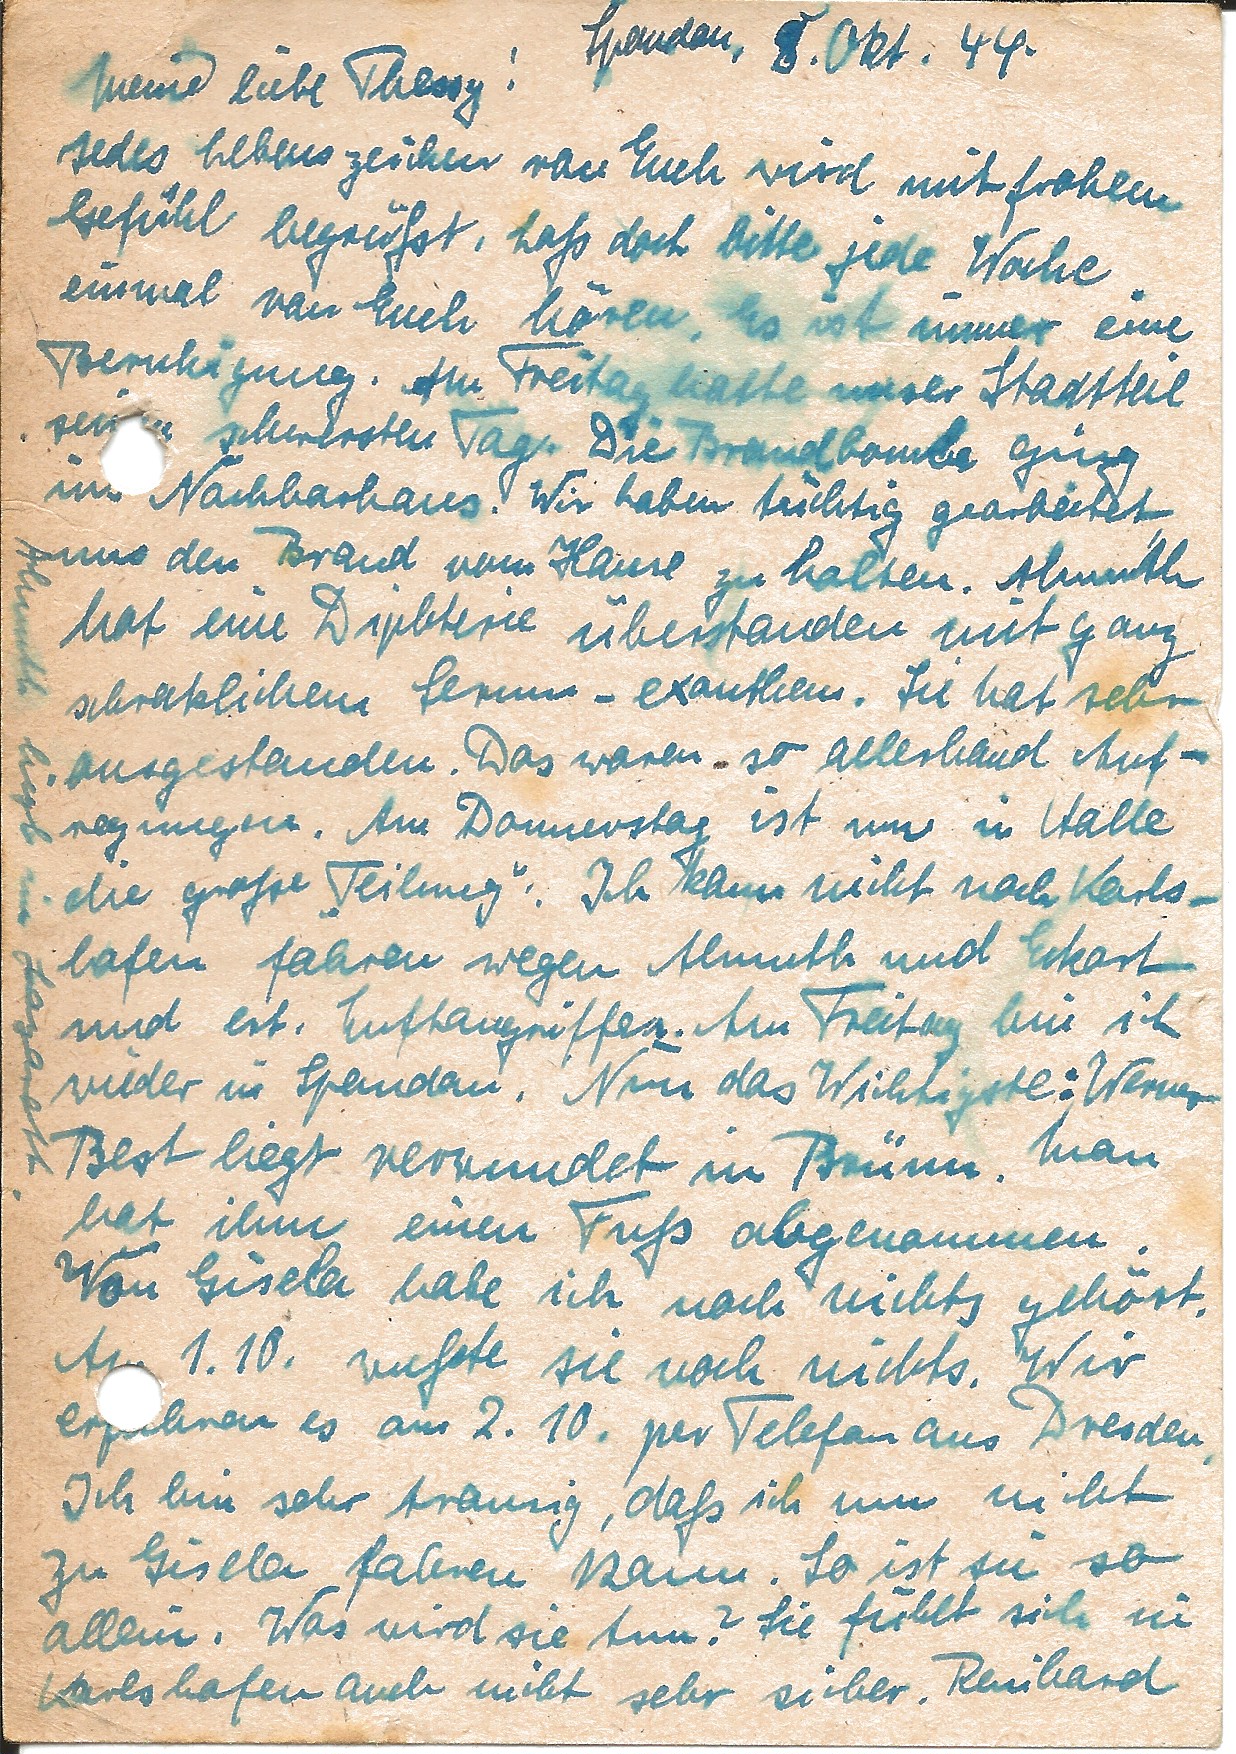 Spandau, 8. Okt. 44.
Meine liebe Thessy!
Jedes Lebenszeichen von Euch wird mit frohem
Gefühl begrüßt. Laß doch bitte jede Woche
einmal von Euch hören. Es ist immer eine
Beruhigung. Am Freitag hatte unser Stadtteil
seinen schwersten Tag. Die Brandbombe ging
ins Nachbarhaus. Wir haben tüchtig gearbeitet,
um den Brand vom Hause zu halten. Almuth
hat eine Diphterie überstanden mit ganz
schrecklichem Serum-exanthem. Sie hat sehr
ausgestanden. Das waren so allerhand Auf-
regungen. Am Donnerstag ist nun in Halle
die große „Teilung". Ich kann nicht nach Karls-
hafen fahren wegen Almuth und Eckart
und evt. Luftangriffen. Am Freitag bin ich
wieder in Spandau. Nun das Wichtigste: Werner
Best liegt verwundet in Brünn. Man
hat ihm einen Fuß abgenommen.
Von Gisela habe ich noch nichts gehört.
Am 1.10. wußte sie noch nichts. Wir
erfuhren es am 2.10. per Telefon aus Dresden.
Ich bin sehr traurig, daß ich nun nicht
zu Gisela fahren kann. So ist sie so
allein. Was wird sie tun? Sie fühlt sich in
Karlshafen auch nicht sehr sicher. Reinhard
Almuth liegt im Lazarett.